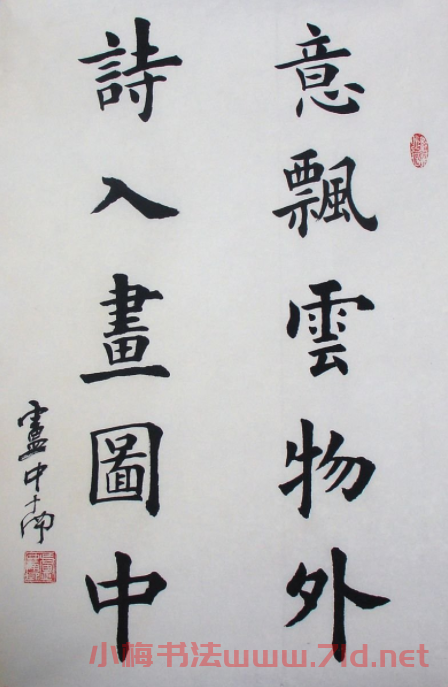 意飄雲物外
詩入畫圖中
盧中南
小梅书法www.71d.net